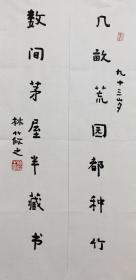 几亩荒园都种竹
九十三岁
数间茅屋半藏书
林筱之